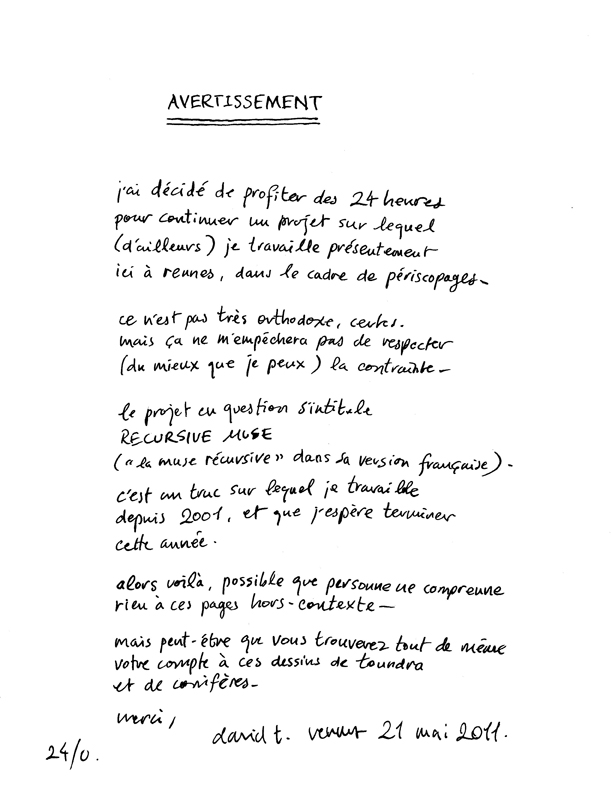 AVERTISSEMENT
j'ai décidé de profiter des 24 heures
pour continuer un projet sur lequel
(d'ailleurs) je travaille présentement
ici à rennes, dans le cadre de périscopages—
ce n'est pas très orthodoxe, certes.
mais ça ne m'empêchera pas de respecter
(du mieux que je peux) la contrainte—
le projet en question s'intitule
RECURSIVE MUSE
(« la muse récursive » dans sa version française).
c'est un truc sur lequel je travaille
depuis 2001, et que j'espère terminer
cette année.
alors voilà, possible que personne ne comprenne
rien à ces pages hors-contexte—
mais peut-être que vous trouverez tout de même
votre compte à ces dessins de toundra
et de conifères—
merci,
david t. 21 mai 2011.
24/0.